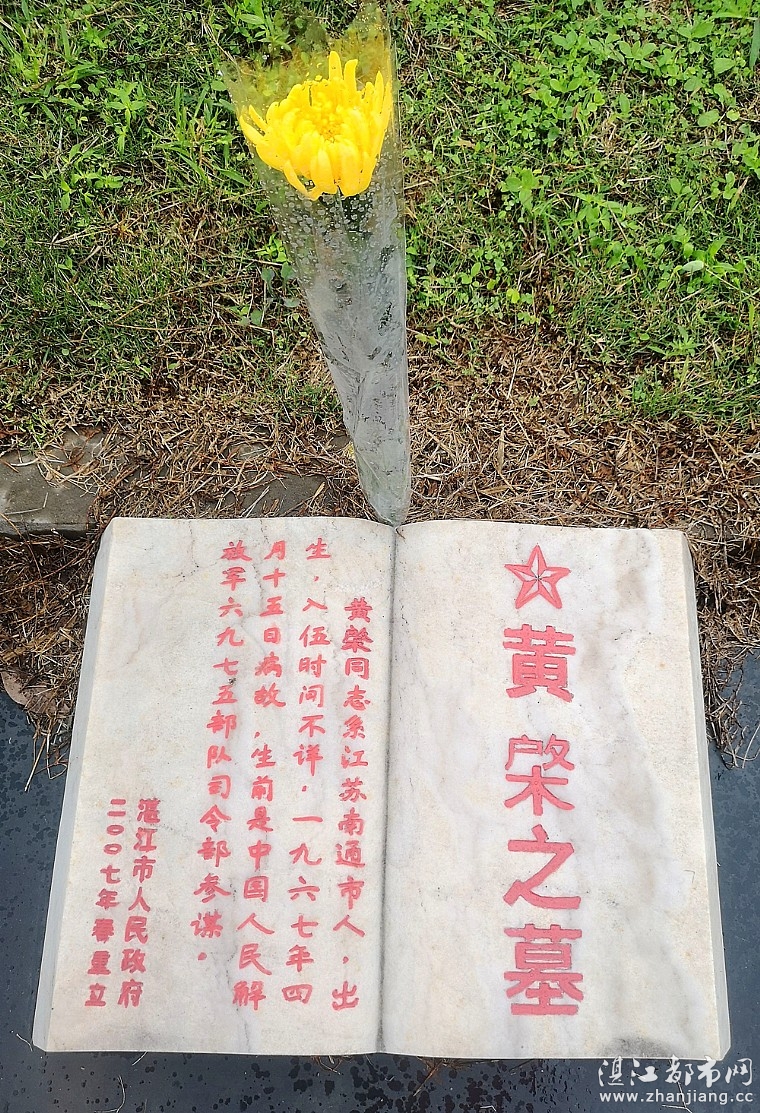 黄棨之墓
黄棨同志系江苏南通市人，出
生，入伍时间不详。一九六七年四
月十五日病故，生前是中国人民解
放军六九七五部队司令部参谋。
湛江市人民政府
二〇〇七年春重立
湛江都市网
www.zhanjiang.cc